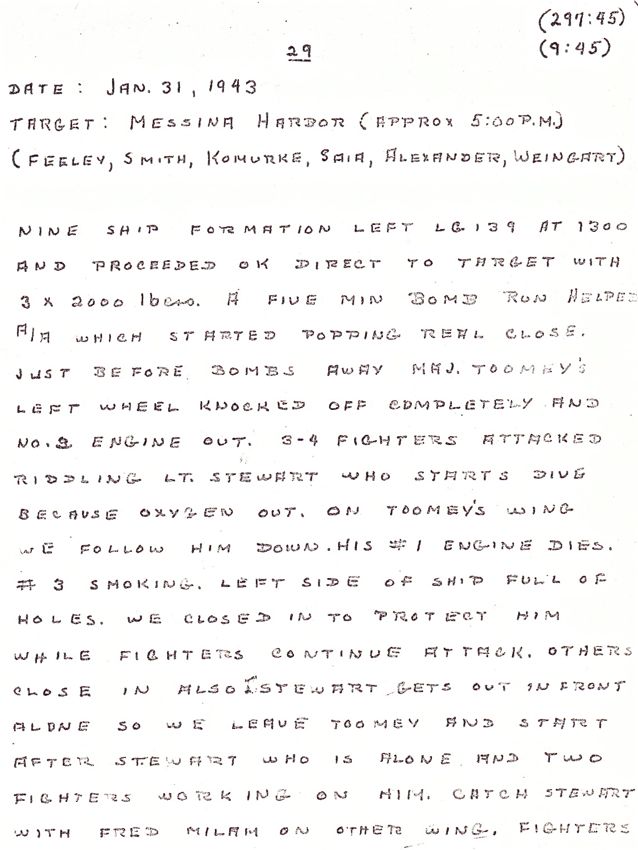 (297:45)
29
(9:45)
DATE: JAN. 31, 1943
TARGET: MESSINA HARBOR (APPROX 5:00 P.M.)
(FEELEY, SMITH, KOMURKE, SAIA, ALEXANDER, WEINGART)
NINE SHIP FORMATION LEFT LG 139 AT 1300
AND PROCEEDED OK DIRECT TO TARGET WITH
3 X 2000 lbers. A FIVE MIN BOMB RUN HELPED
A/A WHICH STARTED POPPING REAL CLOSE.
JUST BEFORE BOMBS AWAY MAJ. TOOMEY'S
LEFT WHEEL KNOCKED OFF COMPLETELY AND
NO. 2 ENGINE OUT. 3-4 FIGHTERS ATTACKED
RIDDLING LT. STEWART WHO STARTS DIVE
BECAUSE OXYGEN OUT. ON TOOMEY'S WING
WE FOLLOW HIM DOWN. HIS #1 ENGINE DIES.
# 3 SMOKING. LEFT SIDE OF SHIP FULL OF
HOLES. WE CLOSED IN TO PROTECT HIM
WHILE FIGHTERS CONTINUE ATTACK. OTHERS
CLOSE IN ALSO. STEWART GETS OUT IN FRONT
ALONE SO WE LEAVE TOOMEY AND START
AFTER STEWART WHO IS ALONE AND TWO
FIGHTERS WORKING ON HIM. CATCH STEWART
WITH FRED MILAM ON OTHER WING. FIGHTERS